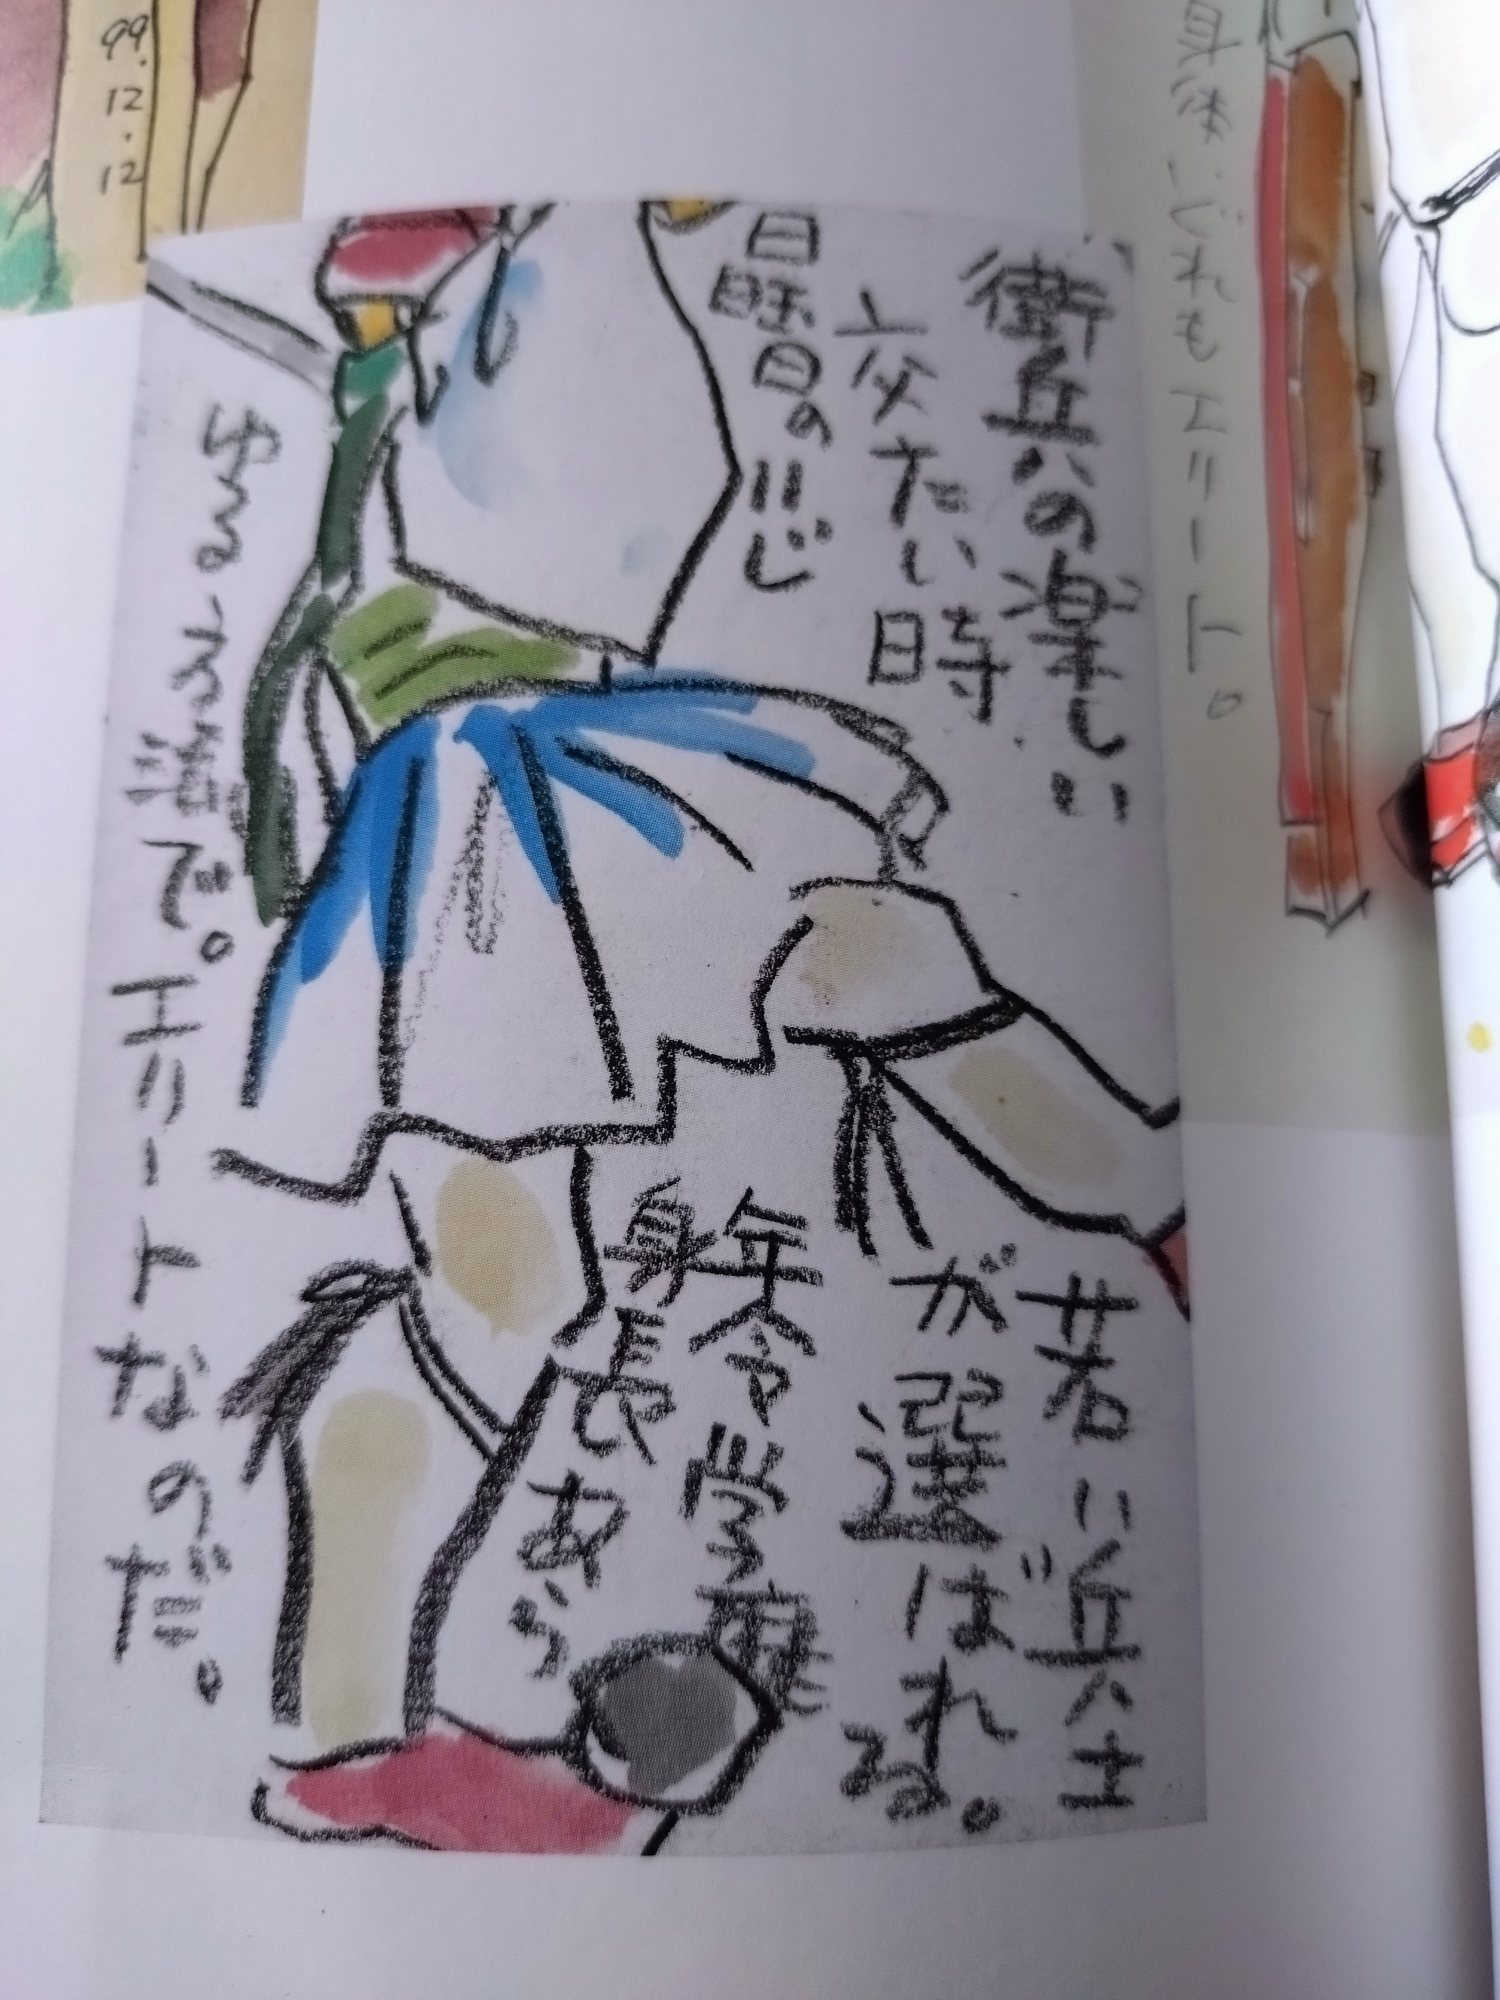 99.12.12
いずれもエリート。
衛兵の楽しい。
交たい時
日
日曜日の11じ
若い兵士
が選ばれる。
年令学歴
身長あら
エリートなのだ。